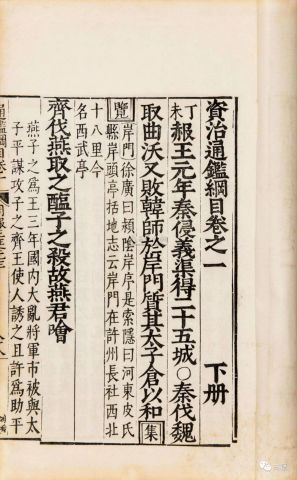 資治通鑑綱目卷之一
下册
丁未
赧王元年秦侵義渠得二十五城○秦伐魏
取曲沃又敗韓師於岸門質其太子倉以和集
覽
岸門徐廣曰潁陰岸亭是索隱曰河東皮氏
縣岸頭亭括地志云岸門在許州長社西北
十八里今
名西武亭
齊伐燕取之醢子之殺故燕君噲
燕子之爲王三年國内大亂將軍市被與太
子平謀攻子之齊王使人誘之且許爲助平